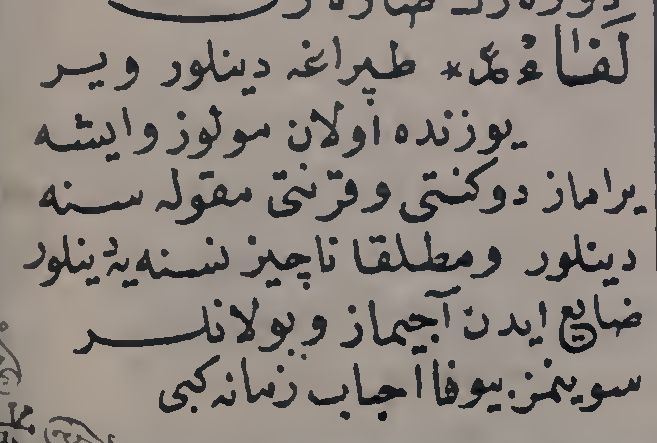 لَفَاءٌ عر * طپراغه دینلور ویر
یوزنده اولان مولوز وایشه
یراماز دوکنتی وقرنتی مقوله سنه
دینلور ومطلقا ناچیز نسنه یه دینلور
ضایع ایدن آجیماز وبولانلر
سوینمز بیوفا احباب زمانه کبی